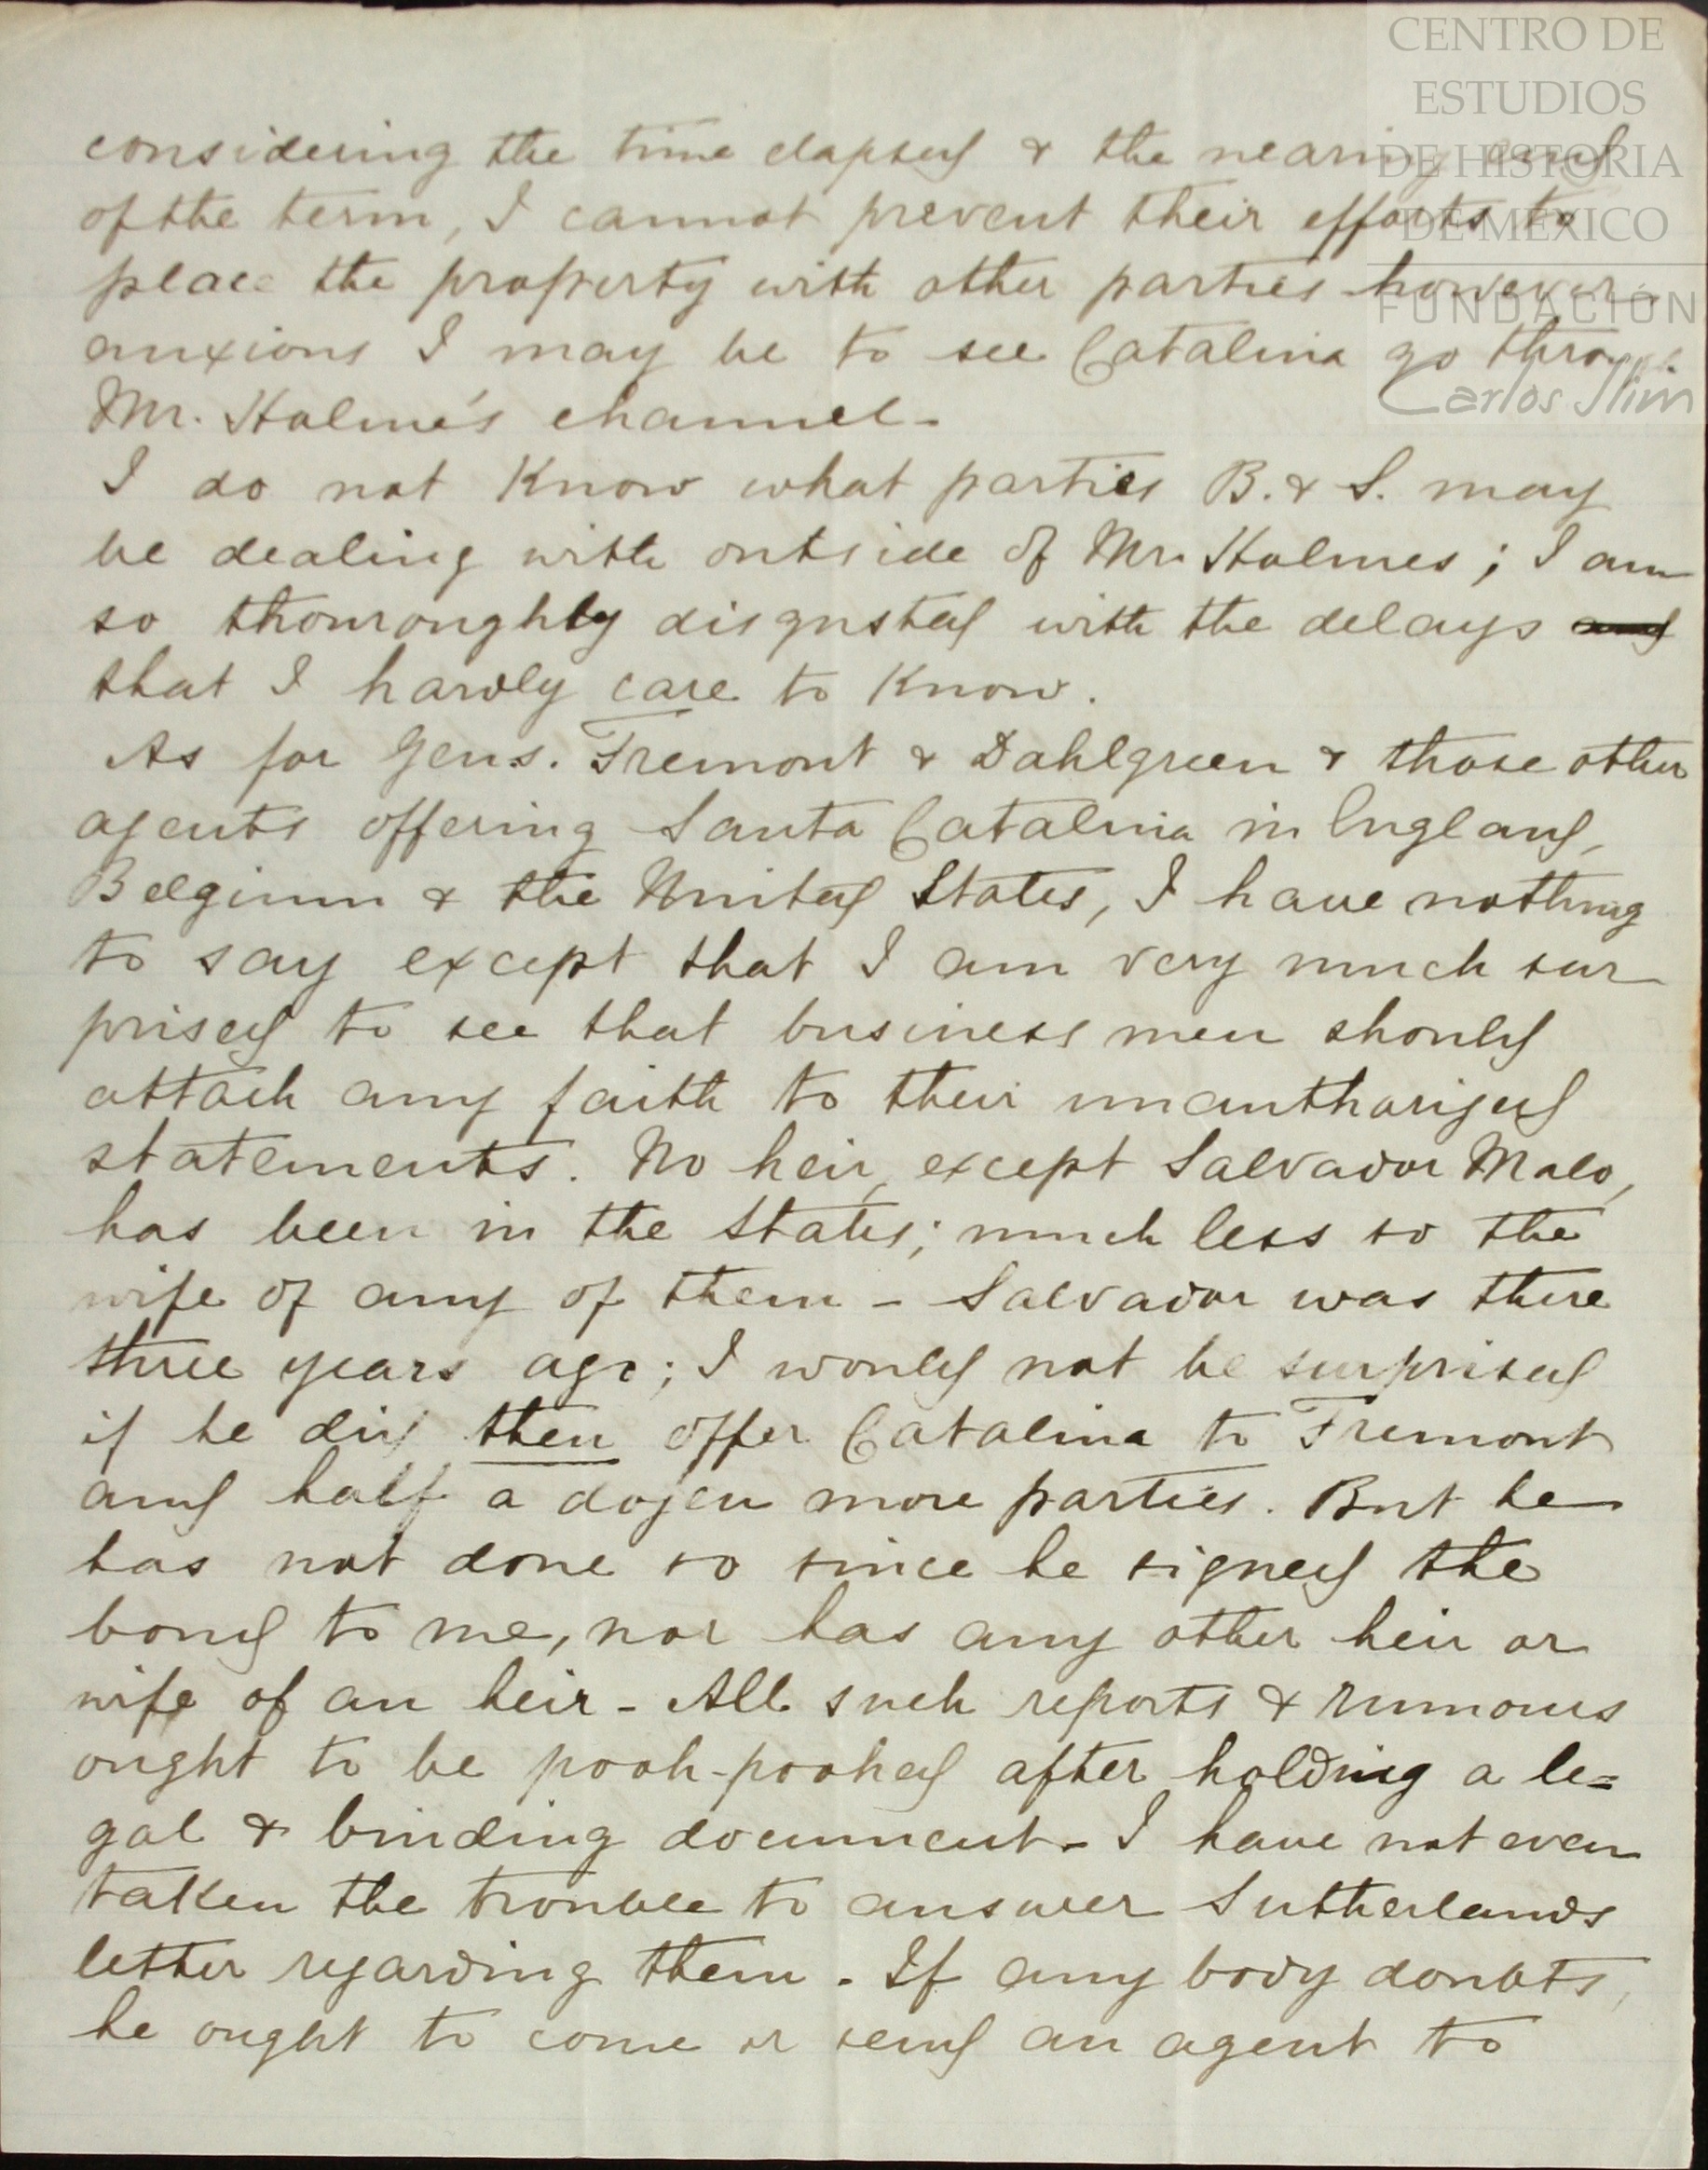 CENTRO DE
ESTUDIOS
DE HISTORIA
DE MÉXICO
FUNDACIÓN
Carlos Slim
considering the time elapsed & the nearing end
of the term, I cannot prevent their efforts to
place the property with other parties however
anxious I may be to see Catalina go through
Mr. Holme's channel -
I do not Know what parties B. & S. may
be dealing with outside of Mr. Holmes; I am
so thouroughly disgusted with the delays and
that I hardly care to Know.
As for Gens. Fremont & Dahlgreen & those other
agents offering Santa Catalina in England,
Belgium & the United States, I have nothing
to say except that I am very much sur
prised to see that business men should
attach any faith to their unauthorized
statements. No heir, except Salvador Malo,
has been in the States; much less so the
wife of any of them - Salvador was there
three years ago; I would not be surprised
if he did then offer Catalina to Fremont
and half a dozen more parties. But he
has not done so since he signed the
bond to me, nor has any other heir or
wife of an heir - All such reports & rumours
ought to be pooh-poohed after holding a le=
gal & binding document - I have not even
taken the trouble to answer Sutherlands
letter regarding them. If any body doubts,
he ought to come or send an agent to